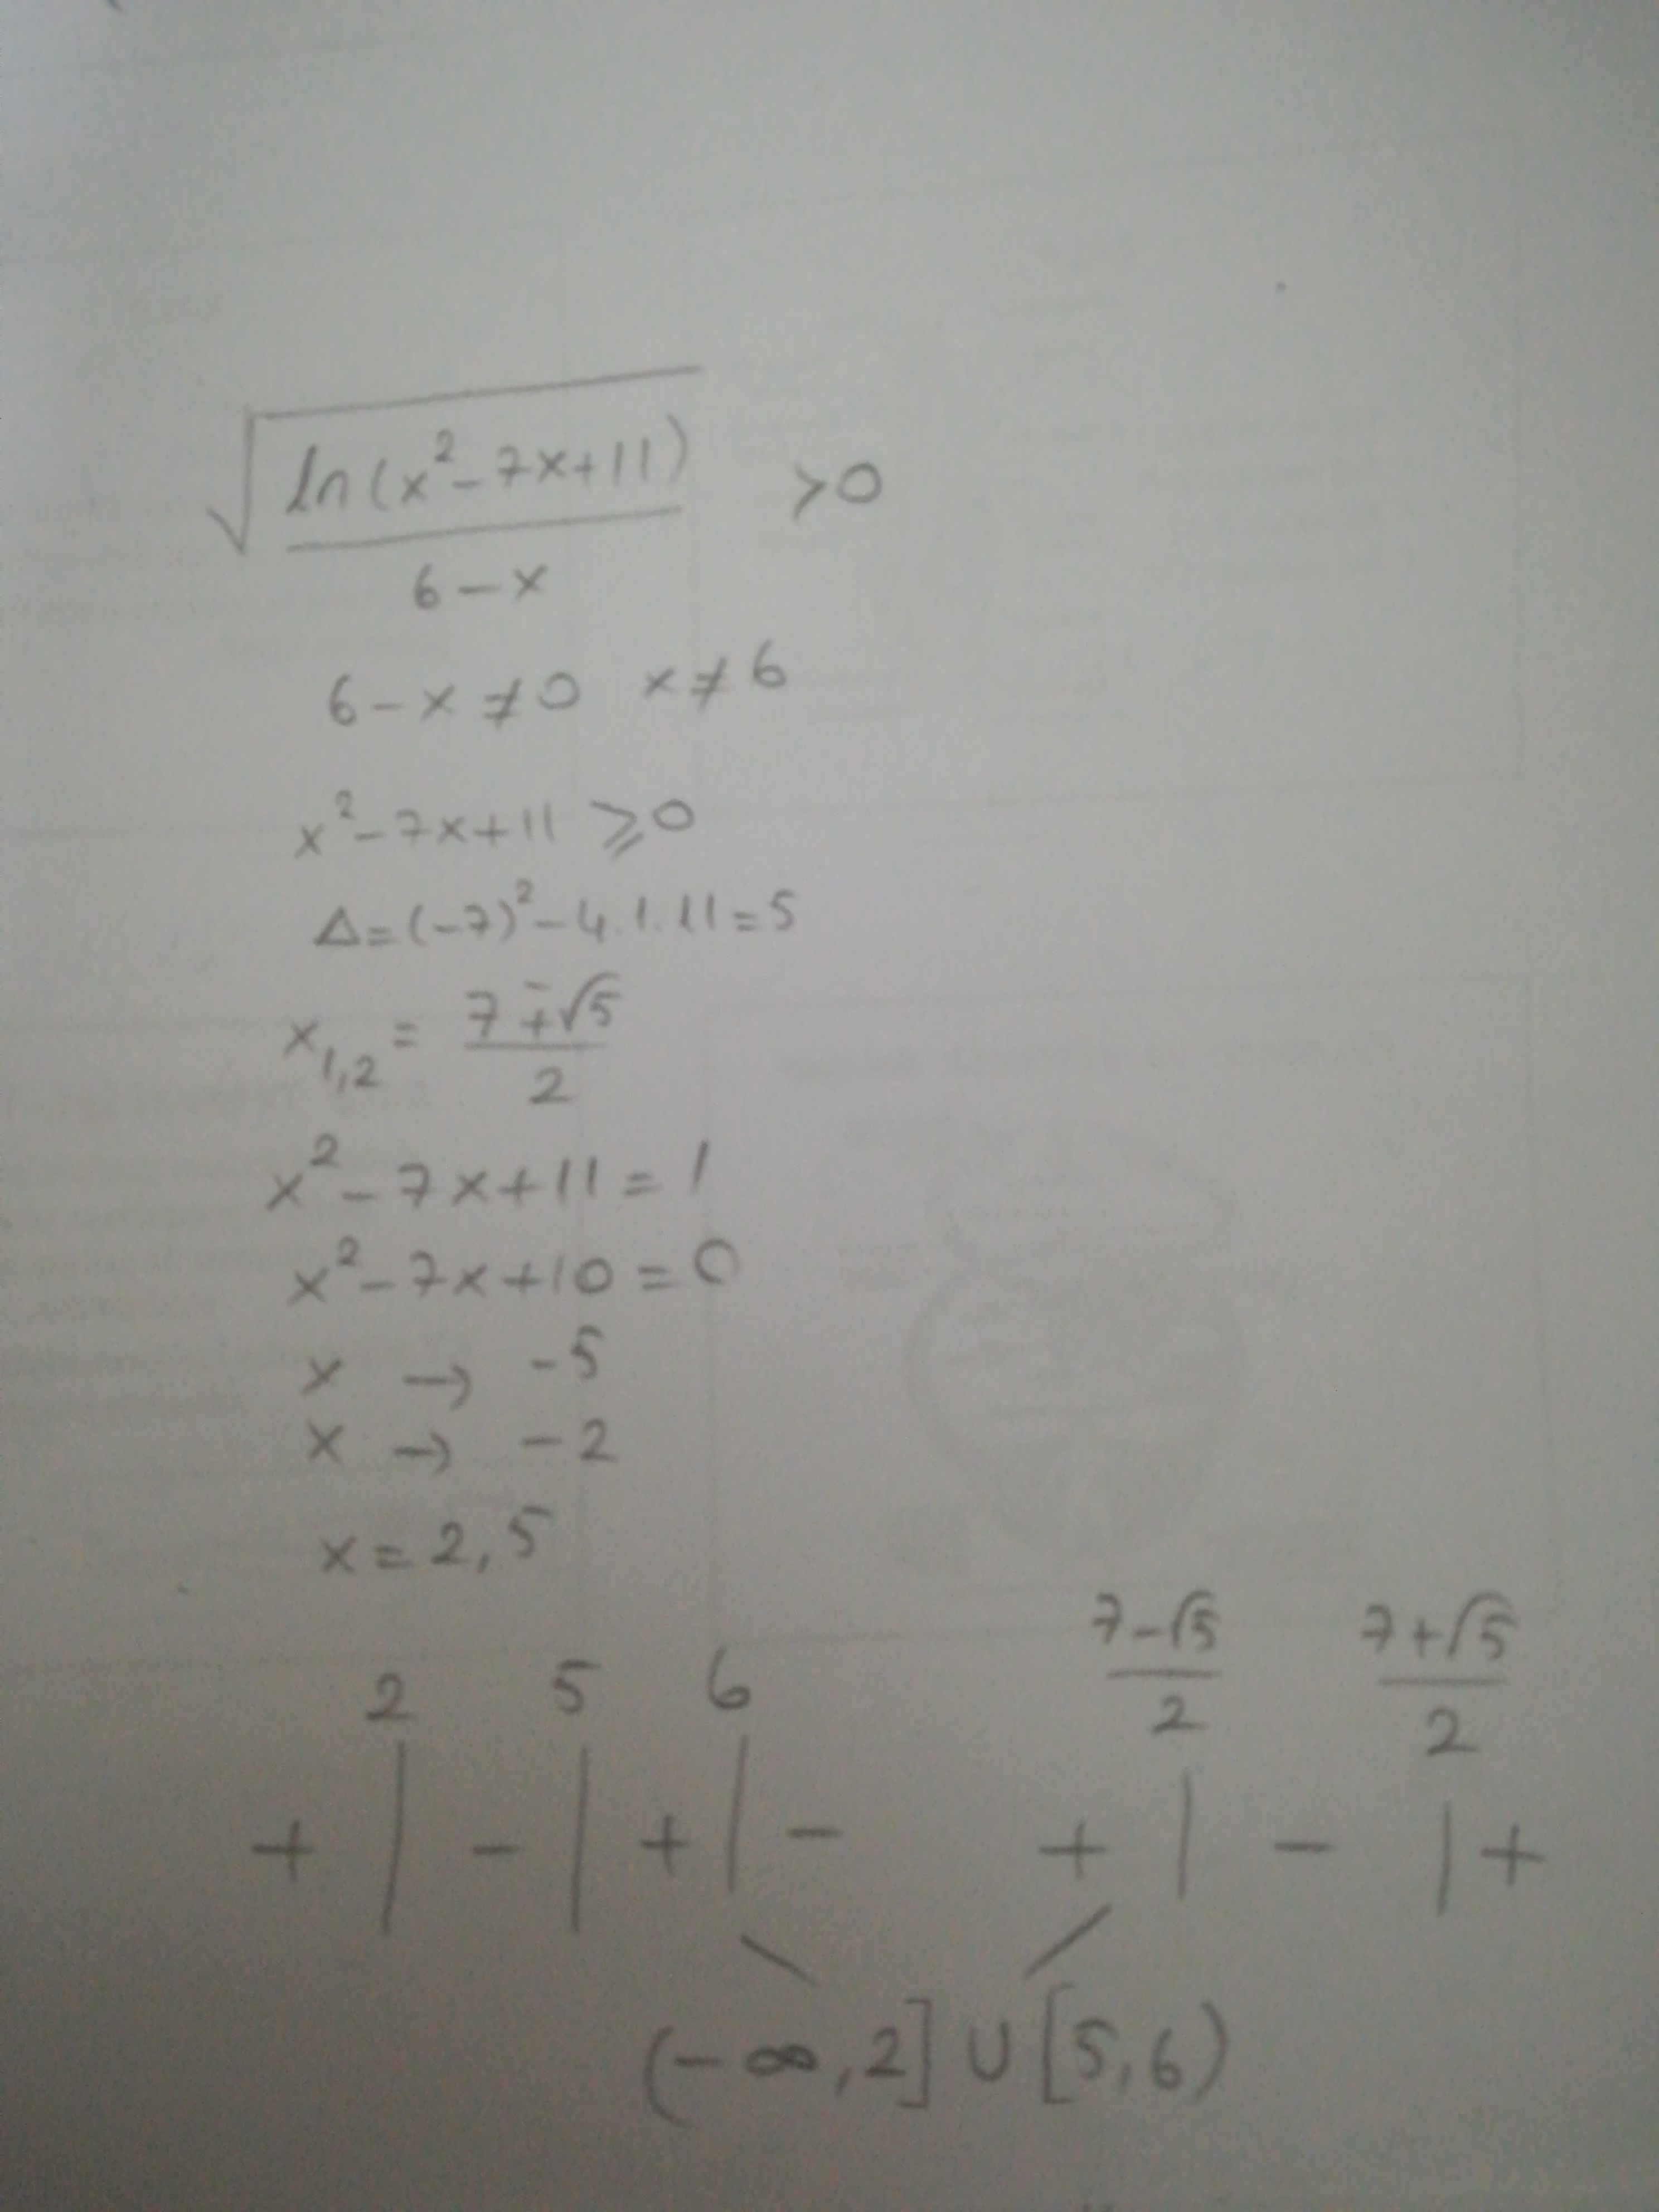 √(ln(x²-7x+11)/(6-x)) >0
6-x≠0 x≠6
x²-7x+11 ⩾0
Δ=(-7)²-4.1.11=5
x₁,₂ = (7∓√5)/2
x²-7x+11=1
x²-7x+10=0
x → -5
x → -2
x=2,5
2 5 6 (7-√5)/2 (7+√5)/2
+ | - | + | - + | - | +
(-∞,2] ∪ [5,6)